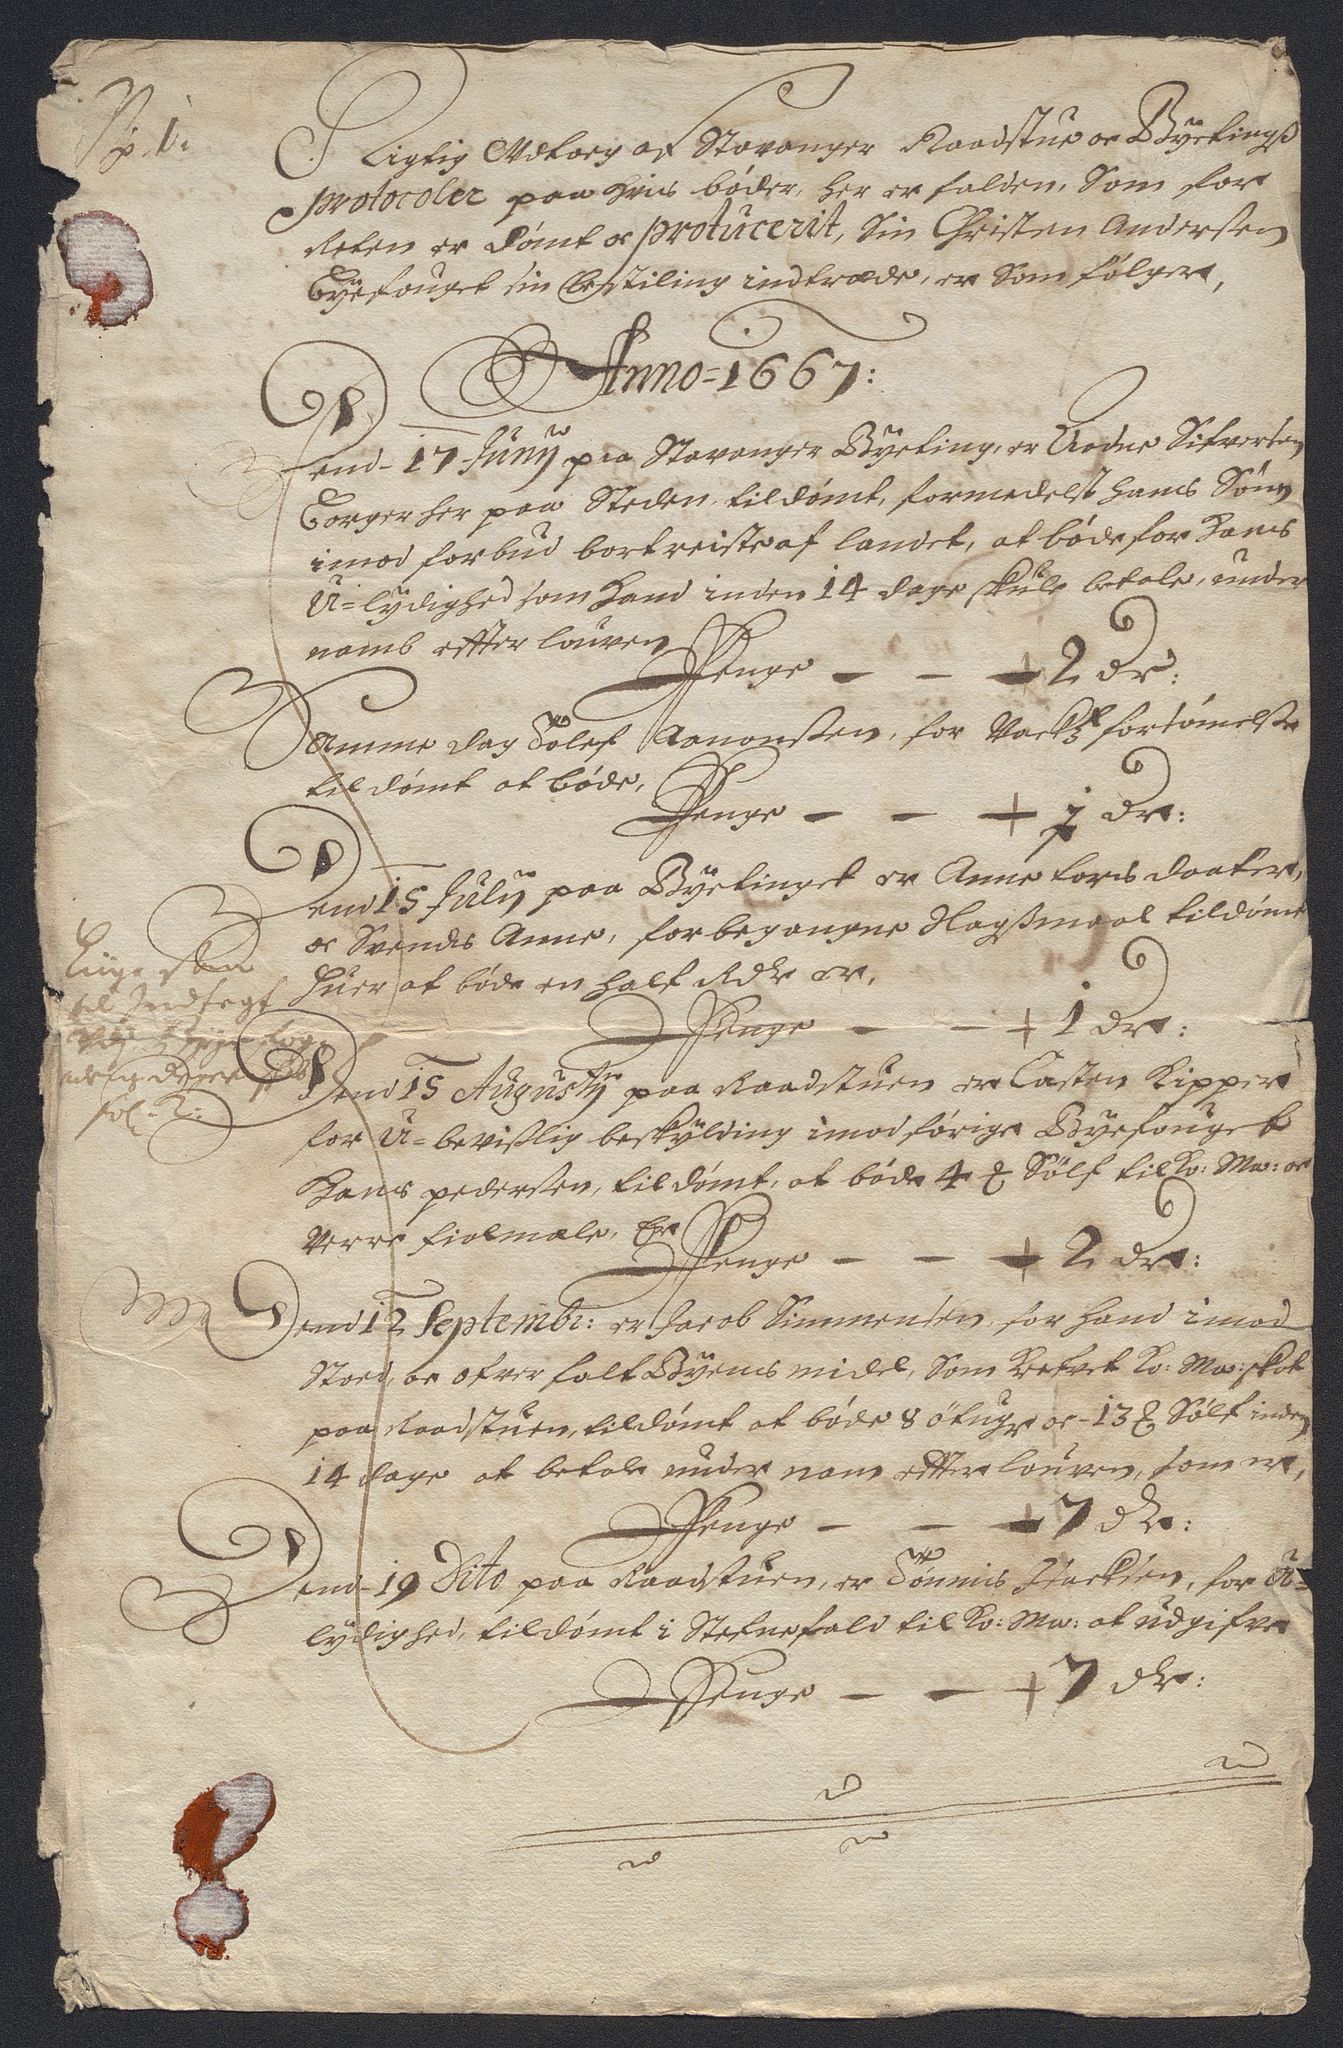 No 1:
Rigtig Udtoeg af Stavanger Raadstue oc Byetings
protocoller paa hvis bøder, her er falden, Som for
Reten er dømt oc producerit, Sin Christen Andersen
Byefouget sin bestiling indtræde, er Som følger,
Anno = 1667:
Dend 17 Junij paa Stavanger Byeting, er Aadne Sifversen
Borger her paa Steden, tildømt, formedelst hans Søn
imod forbud bortreiste af landet, at bøde for hans
U=lydighed som hand inden 14 dage skule betale, under
namb efter louven
Penge - - + 2 dr:
Samme dag Tolef Aanonsen, for Vackt forsømelse
tildømt at bøde,
Penge - - + dr:
Dend 15 Julij paa Byetinget er Anne tors daater,
oc Svends Anne, for begangne Slagsmaal tildømt
huer at bøde en half Rdr er,
Penge - - + 1 dr:
til Indtegt
fol. 2:
Dend 15 Augustij paa Raadstuen er Casten Kipper
for U=bevislig beskylding imod førige Byefouget
Hans pedersen, tildømt, at bøde 4 Sølf til Ko: Ma: oc
Verre fiolmale, Er
Penge - - + 2 dr:
Dend 12 Septembr: er Jacob Simmensen for hand imod
Stoed, oc ofver falt Byens midel, Som Krefvet Ko: Ma: skat
paa Raadstuen, tildømt at bøde 8 Ortuger oc 13 Sølf inden
14 dage at betale under nam efter louven, som er,
Penge - - + 7 dr:
Dend 19 Dito paa Raadstuen, er Tønnis for U=
lydighed, tildømt i Stefnefald til Ko: Ma: at udgifve
Penge - - + 7 dr: